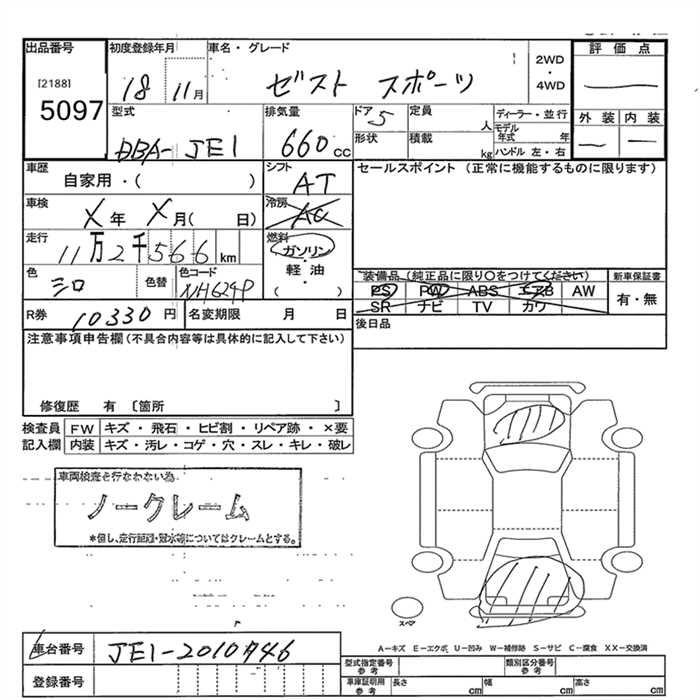 出品番号
[2188]
5097
初度登録年月
18 11月
車名・グレード
ゼスト スポーツ
2WD
・
4WD
評価点
型式
DBA-JE1
排気量
660 cc
ドア 5
定員 人
形状
積載 kg
ディーラー・並行
モデル年式 年
ハンドル 左・右
外装
内装
車歴
自家用・( )
シフト
AT
セールスポイント (正常に機能するものに限ります)
車検
X 年 X 月( 日)
冷房
AC
走行
11万2千566 km
燃料
ガソリン
・
軽油
・
( )
色
シロ
色替
色コード
NH624P
装備品 (純正品に限り○をつけてください)
PS PW ABS エアB AW
SR ナビ TV カワ
新車保証書
有・無
R券 10330 円
名変期限 月 日
後日品
注意事項申告欄 (不具合内容等は具体的に記入して下さい)
修復歴 有 〔箇所 〕
検査員記入欄
FW キズ・飛石・ヒビ割・リペア跡・×要
内装 キズ・汚レ・コゲ・穴・スレ・キレ・破レ
車両検査を行なわない為
ノークレーム
*但し、走行距離・冠水等についてはクレームとする。
スペア
A-キズ E-エクボ U-凹み W-補修跡 S-サビ C-腐食 XX-交換済
車台番号 JE1-2010746
登録番号
型式指定番号 参考
類別区分番号 参考
車庫証明用 参考
長さ cm
幅 cm
高さ cm